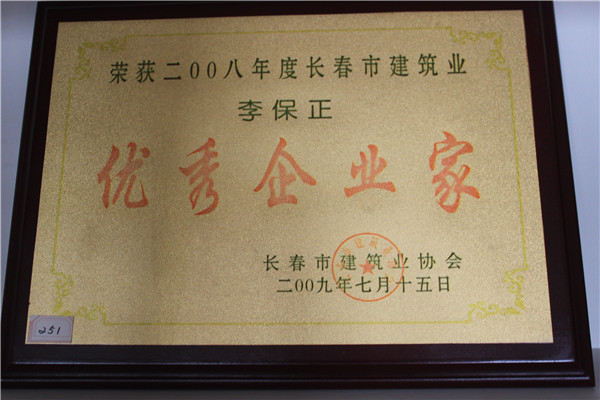 荣获二00八年度长春市建筑业
李保正
优秀企业家
长春市建筑业协会
二00九年七月十五日
251